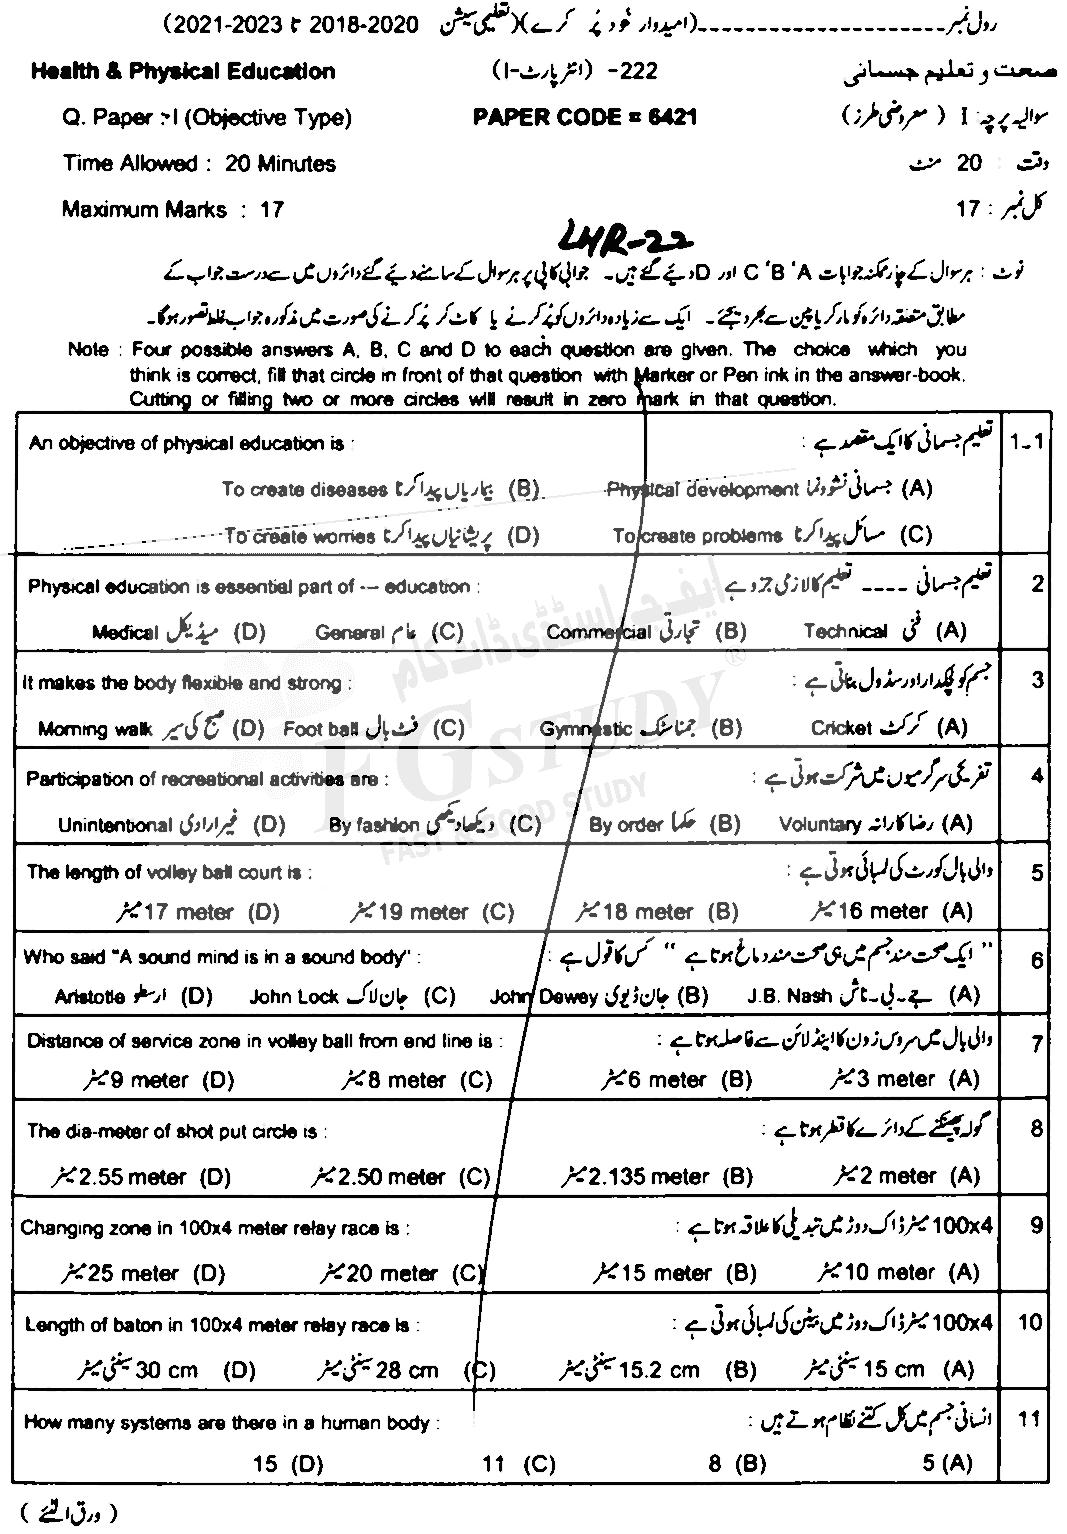 رول نمبر ---------------------- (امیدوار خود پُر کرے) (تعلیمی سیشن 2018-2020 تا 2021-2023)
Health & Physical Education 222- (انٹر پارٹ-I) صحت و تعلیم جسمانی
Q. Paper :-I (Objective Type) PAPER CODE = 6421 سوالیہ پرچہ: I (معروضی طرز)
Time Allowed : 20 Minutes وقت : 20 منٹ
Maximum Marks : 17 کل نمبر : 17
LHR-22
نوٹ : ہر سوال کے چار ممکنہ جوابات A ‘B ‘C اور D دیئے گئے ہیں۔ جوابی کاپی پر ہر سوال کے سامنے دیئے گئے دائروں میں سے درست جواب کے
مطابق متعلقہ دائرہ کو مارکر یا پین سے بھر دیجئے۔ ایک سے زیادہ دائروں کو پُر کرنے یا کاٹ کر پُر کرنے کی صورت میں مذکورہ جواب غلط تصور ہوگا۔
Note : Four possible answers A, B, C and D to each question are given. The choice which you
think is correct, fill that circle in front of that question with Marker or Pen ink in the answer-book.
Cutting or filling two or more circles will result in zero mark in that question.
An objective of physical education is : تعلیم جسمانی کا ایک مقصد ہے : 1-1
To create diseases بیماریاں پیدا کرنا (B) Physical development جسمانی نشوونما (A)
To create worries پریشانیاں پیدا کرنا (D) To create problems مسائل پیدا کرنا (C)
Physical education is essential part of --- education : تعلیم جسمانی ---- تعلیم کا لازمی جزو ہے 2
Medical میڈیکل (D) General عام (C) Commercial تجارتی (B) Technical فنی (A)
It makes the body flexible and strong : جسم کو لچکدار اور سڈول بناتی ہے : 3
Morning walk صبح کی سیر (D) Foot ball فٹ بال (C) Gymnestic جمناسٹک (B) Cricket کرکٹ (A)
Participation of recreational activities are : تفریحی سرگرمیوں میں شرکت ہوتی ہے : 4
Unintentional غیر ارادی (D) By fashion دیکھا دیکھی (C) By order حکما (B) Voluntary رضا کارانہ (A)
The length of volley ball court is : والی بال کورٹ کی لمبائی ہوتی ہے : 5
17 meter میٹر (D) 19 meter میٹر (C) 18 meter میٹر (B) 16 meter میٹر (A)
Who said "A sound mind is in a sound body" : " ایک صحت مند جسم میں ہی صحت مند دماغ ہوتا ہے " کس کا قول ہے : 6
Aristotle ارسطو (D) John Lock جان لاک (C) John Dewey جان ڈیوی (B) J.B. Nash جے-بی-ناش (A)
Distance of service zone in volley ball from end line is : والی بال میں سروس زون کا اینڈ لائن سے فاصلہ ہوتا ہے : 7
9 meter میٹر (D) 8 meter میٹر (C) 6 meter میٹر (B) 3 meter میٹر (A)
The dia-meter of shot put circle is : گولہ پھینکنے کے دائرے کا قطر ہوتا ہے : 8
2.55 meter میٹر (D) 2.50 meter میٹر (C) 2.135 meter میٹر (B) 2 meter میٹر (A)
Changing zone in 100x4 meter relay race is : 100x4 میٹر ڈاک دوڑ میں تبدیلی کا علاقہ ہوتا ہے : 9
25 meter میٹر (D) 20 meter میٹر (C) 15 meter میٹر (B) 10 meter میٹر (A)
Length of baton in 100x4 meter relay race is : 100x4 میٹر ڈاک دوڑ میں بیٹن کی لمبائی ہوتی ہے : 10
30 cm سینٹی میٹر (D) 28 cm سینٹی میٹر (C) 15.2 cm سینٹی میٹر (B) 15 cm سینٹی میٹر (A)
How many systems are there in a human body : انسانی جسم میں کل کتنے نظام ہوتے ہیں : 11
15 (D) 11 (C) 8 (B) 5 (A)
( ورق الٹیے )
ایف جی اسٹڈی ڈاٹ کام
FG STUDY ®
FAST & GOOD STUDY